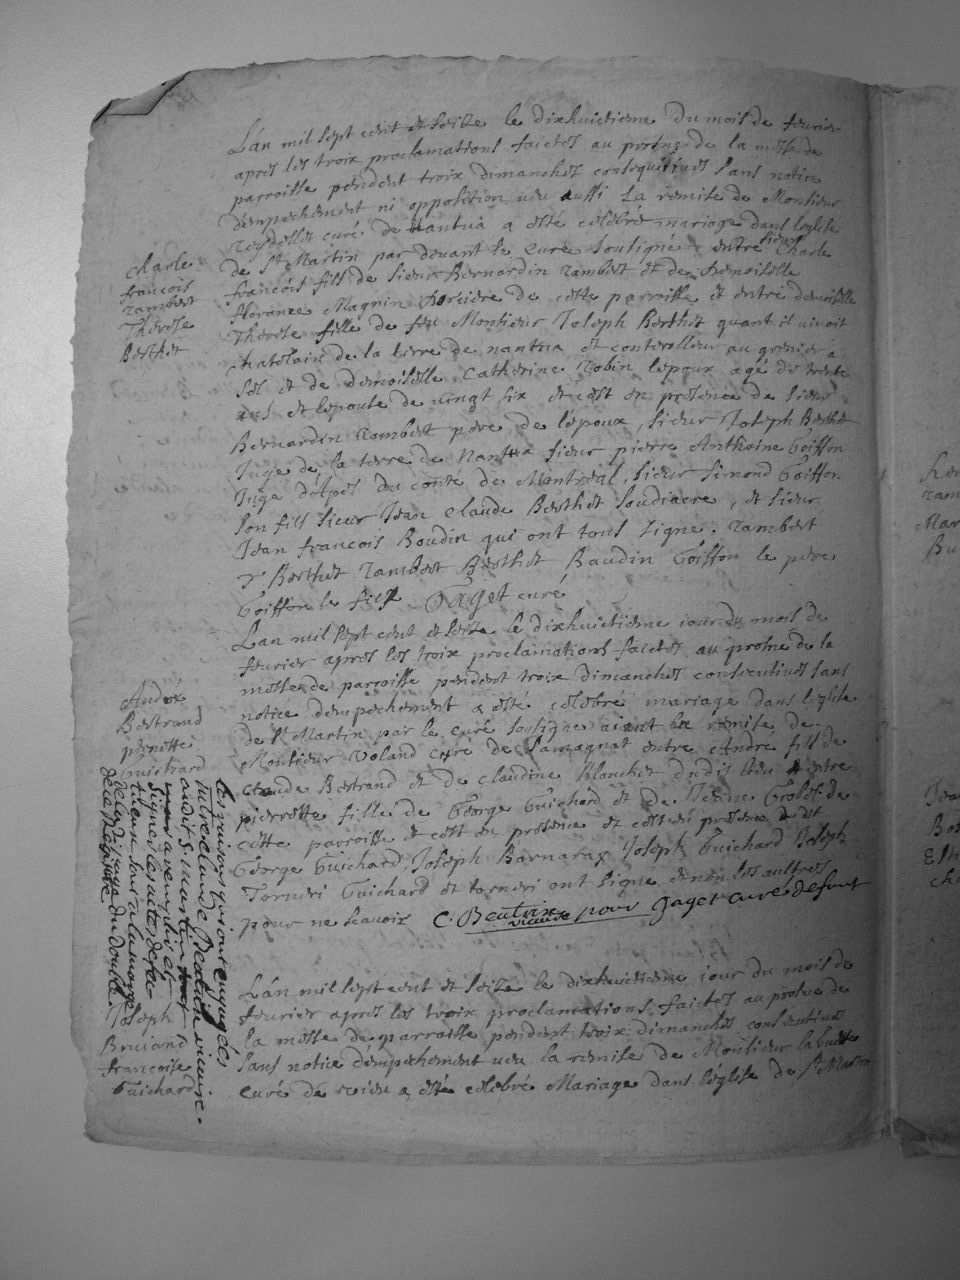 Lán mil sept cent et seize lé dixhuictieme du mois de feurier
apres les troix proclamations faictes au prosne de la messe de
parroisse pendent troix dimanches consequtives sans notice
dempechement ni opposition ueu aussi la remise de Monsieur
curé de nantua a esté célébré mariage dans leglise
de St Martin par deuant le curé soutigné entre sieur Charle
francois fils de sieur Bernardin rambert et de demoiselle
floranze Magnin de cette parroisse et entre demoiselle
Therese fille de feu Monsieur Joseph Berthet quant il uiuoit
chatelain de la terre de nantua et conterolleur au grenier a
sel et de demoiselle Catherine Robin lepoux agé de trente
et lepouse de uingt six et cest en presence de sieur
Bernardin rambert pere de lepoux, sieur Joseph Berthet
Juge de la terre de Nantua sieur pierre Anthoine Goiffon
Juge du conté de Montréal, sieur simond Goiffon
son fils sieur Jean Claude Berthet soudiacre, et sieur
Jean francois Boudin qui ont tous signé. rambert
Berthet rambert Berthet Baudin Goiffon le pere
Goiffon le fils Gaget curé
Charle
francois
rambert
Thérèse
Berthet
Lan mil sept cent et seize le dixhuictieme iour du mois de
feurier apres les troix proclamations faictes au prosne de la
messe de parroisse pendent troix dimanches consecutives sans
notice dempechement a esté célébré mariage dans leglise
de St Martin par le curé soutigné aiant la remise de
Monsieur Voland curé de Samagnat entre André fils de
claude Bertrand et de claudine Blanchet dudit lieu et entre
pierrette fille de George Guichard et de Golet de
cette parroisse et cest en presence et cest en presence de
George Guichard Joseph Barnaraz Joseph Guichard Joseph
Torneri Guichard et torneri ont signé et non les aultres
pour ne scauoir C. Beatrix vicaire pour Gaget curé defunt
André
Bertrand
pernette
Guichard
les raisons qui ont engagés
Claude Beatrix vicaire
audit St martin
a
signer les actes de
sont a la marge
de la page du double
de le
Lán mil sept cent et seize le dixhuictieme iour du mois de
feurier apres les troix proclamations faictes au prosne de
la messe de parroisse pendent troix dimanches consecutives
sans notice dempechement ueu la remise de Monsieur
curé de a esté célébré Mariage dans léglise de St Martin
Joseph
Bruiand
francoise
Guichard